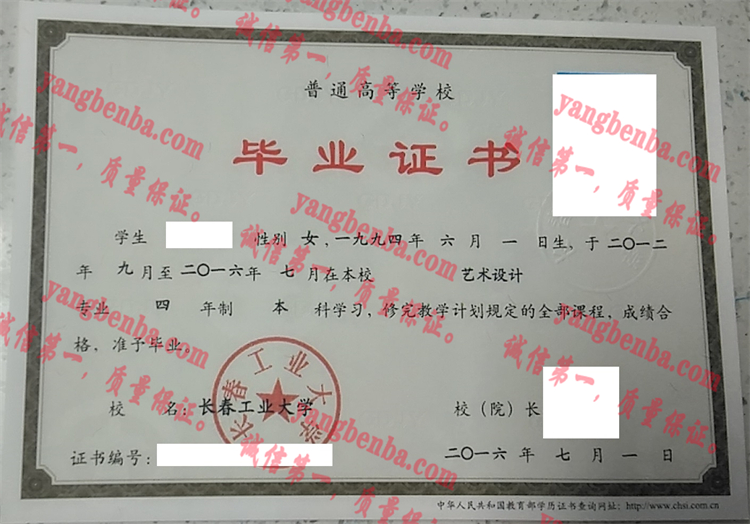 普通高等学校
毕业证书
学生 性别 女，一九九四年 六 月 一 日生，于二〇一二
年 九 月至二〇一六年 七 月在本校 艺术设计
专业 四 年制 本 科学习，修完教学计划规定的全部课程，成绩合
格，准予毕业。
长春工业大学
校 名：长春工业大学 校（院）长
证书编号： 二〇一六年 七 月 一 日
中华人民共和国教育部学历证书查询网址：http://www.chsi.com.cn
yangbenba.com
诚信第一，质量保证。
yangbenba.com
诚信第一，质量保证。
yangbenba.com
诚信第一，质量保证。
yangbenba.com
诚信第一，质量保证。
yangbenba.com
诚信第一，质量保证。
yangbenba.com
诚信第一，质量保证。